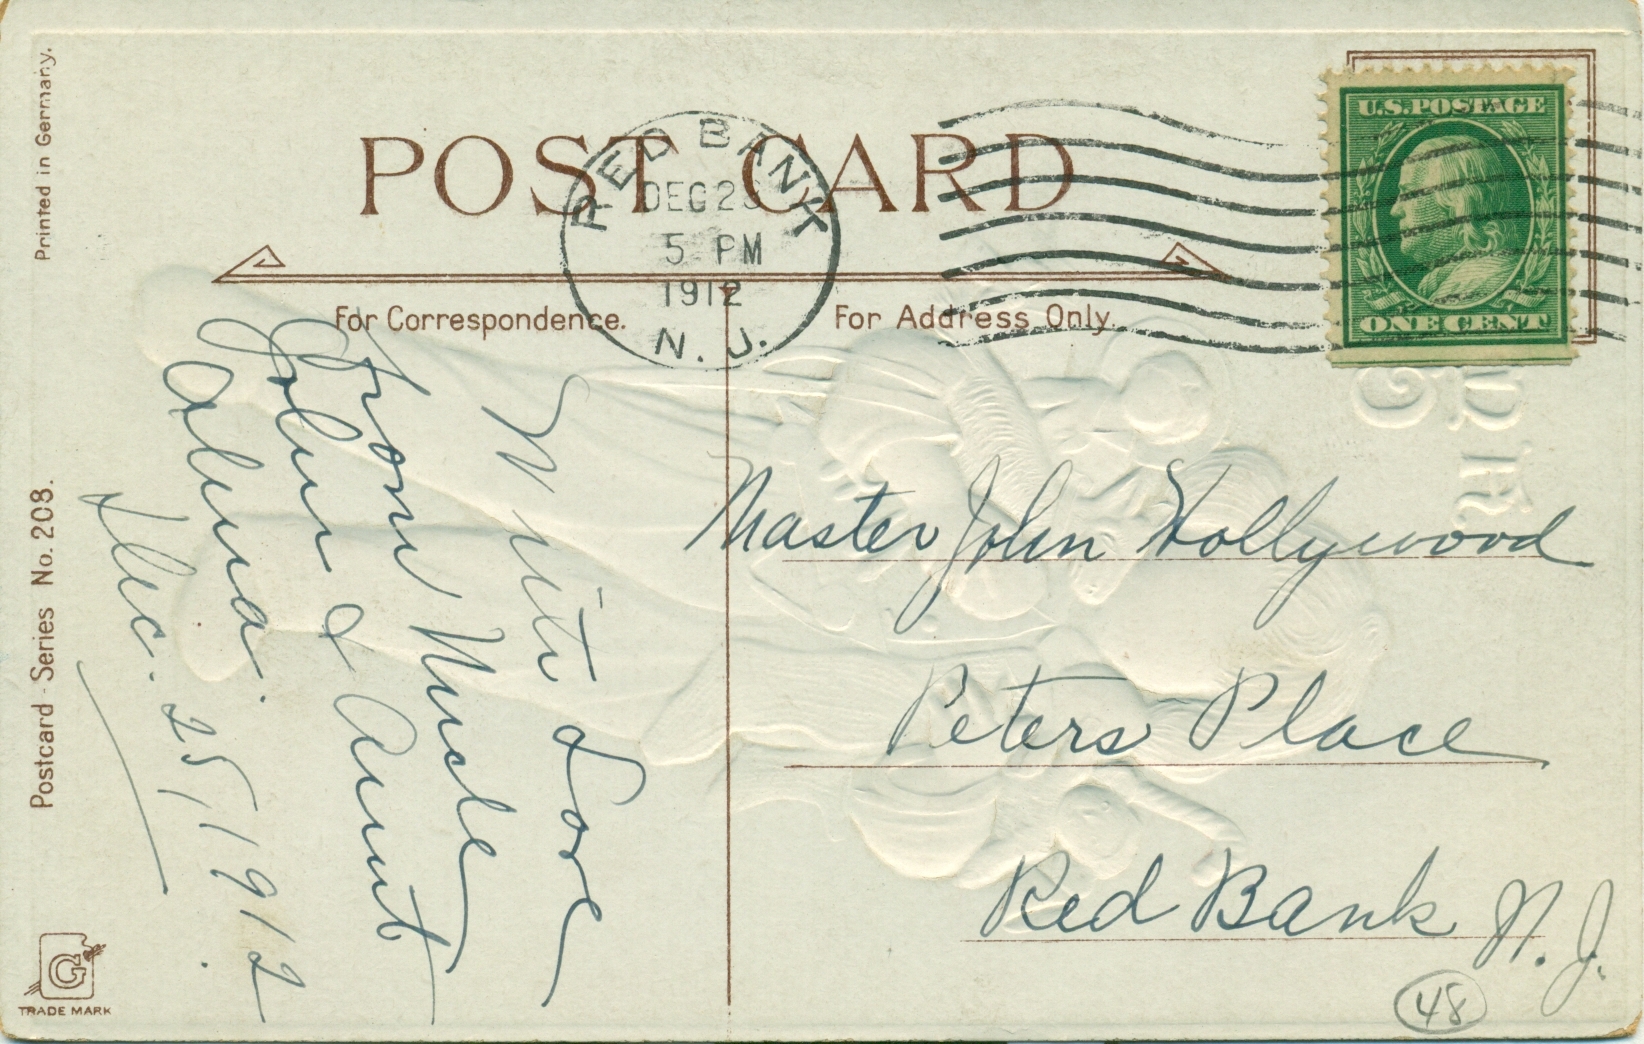 Printed in Germany.
POST CARD
RED BANK
DEC 2
5 PM
1912
N. J.
U.S. POSTAGE
ONE CENT
For Correspondence.
For Address Only.
With Love
From Uncle
John & Aunt
Alma.
Dec. 25, 1912
Master John Hollywood
Peters Place
Red Bank N. J.
48
Postcard - Series No. 208.
G
TRADE MARK